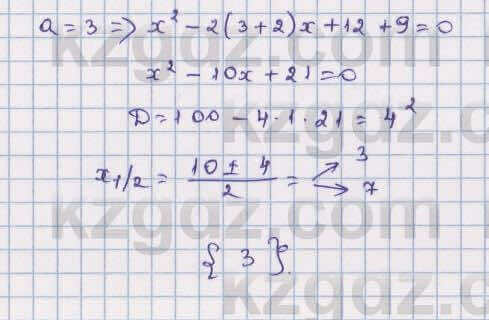 a = 3 => x² - 2(3+2)x + 12 + 9 = 0
x² - 10x + 21 = 0
D = 100 - 4·1·21 = 4²
x1/2 = (10 ± 4)/2 = 3
7
{ 3 }.
kzgdz.com
kzgdz.com
kzgdz.com
kzgdz.com